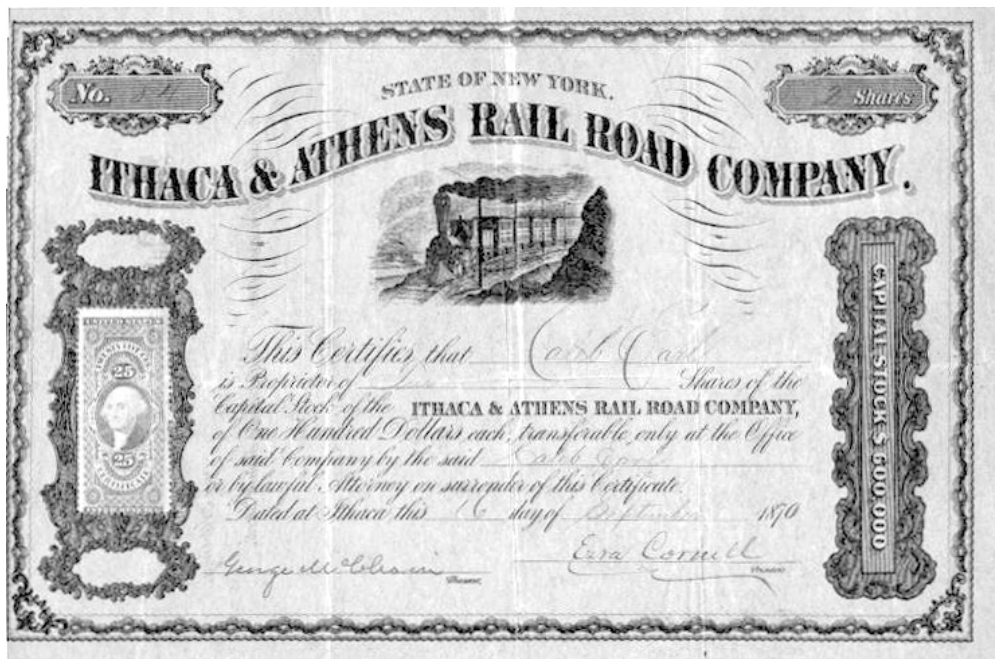 No. 54
2 Shares
STATE OF NEW YORK.
ITHACA & ATHENS RAIL ROAD COMPANY.
UNITED STATES
25
25
CERTIFICATE
CAPITAL STOCK $ 600,000
This Certifies, that Caleb Carl
is Proprietor of Shares of the
Capital Stock of the ITHACA & ATHENS RAIL ROAD COMPANY,
of One Hundred Dollars each, transferable only at the Office
of said Company by the said Caleb
or by lawful Attorney on surrender of this Certificate.
Dated at Ithaca this 16 day of September 1870
George McChain
Ezra Cornell